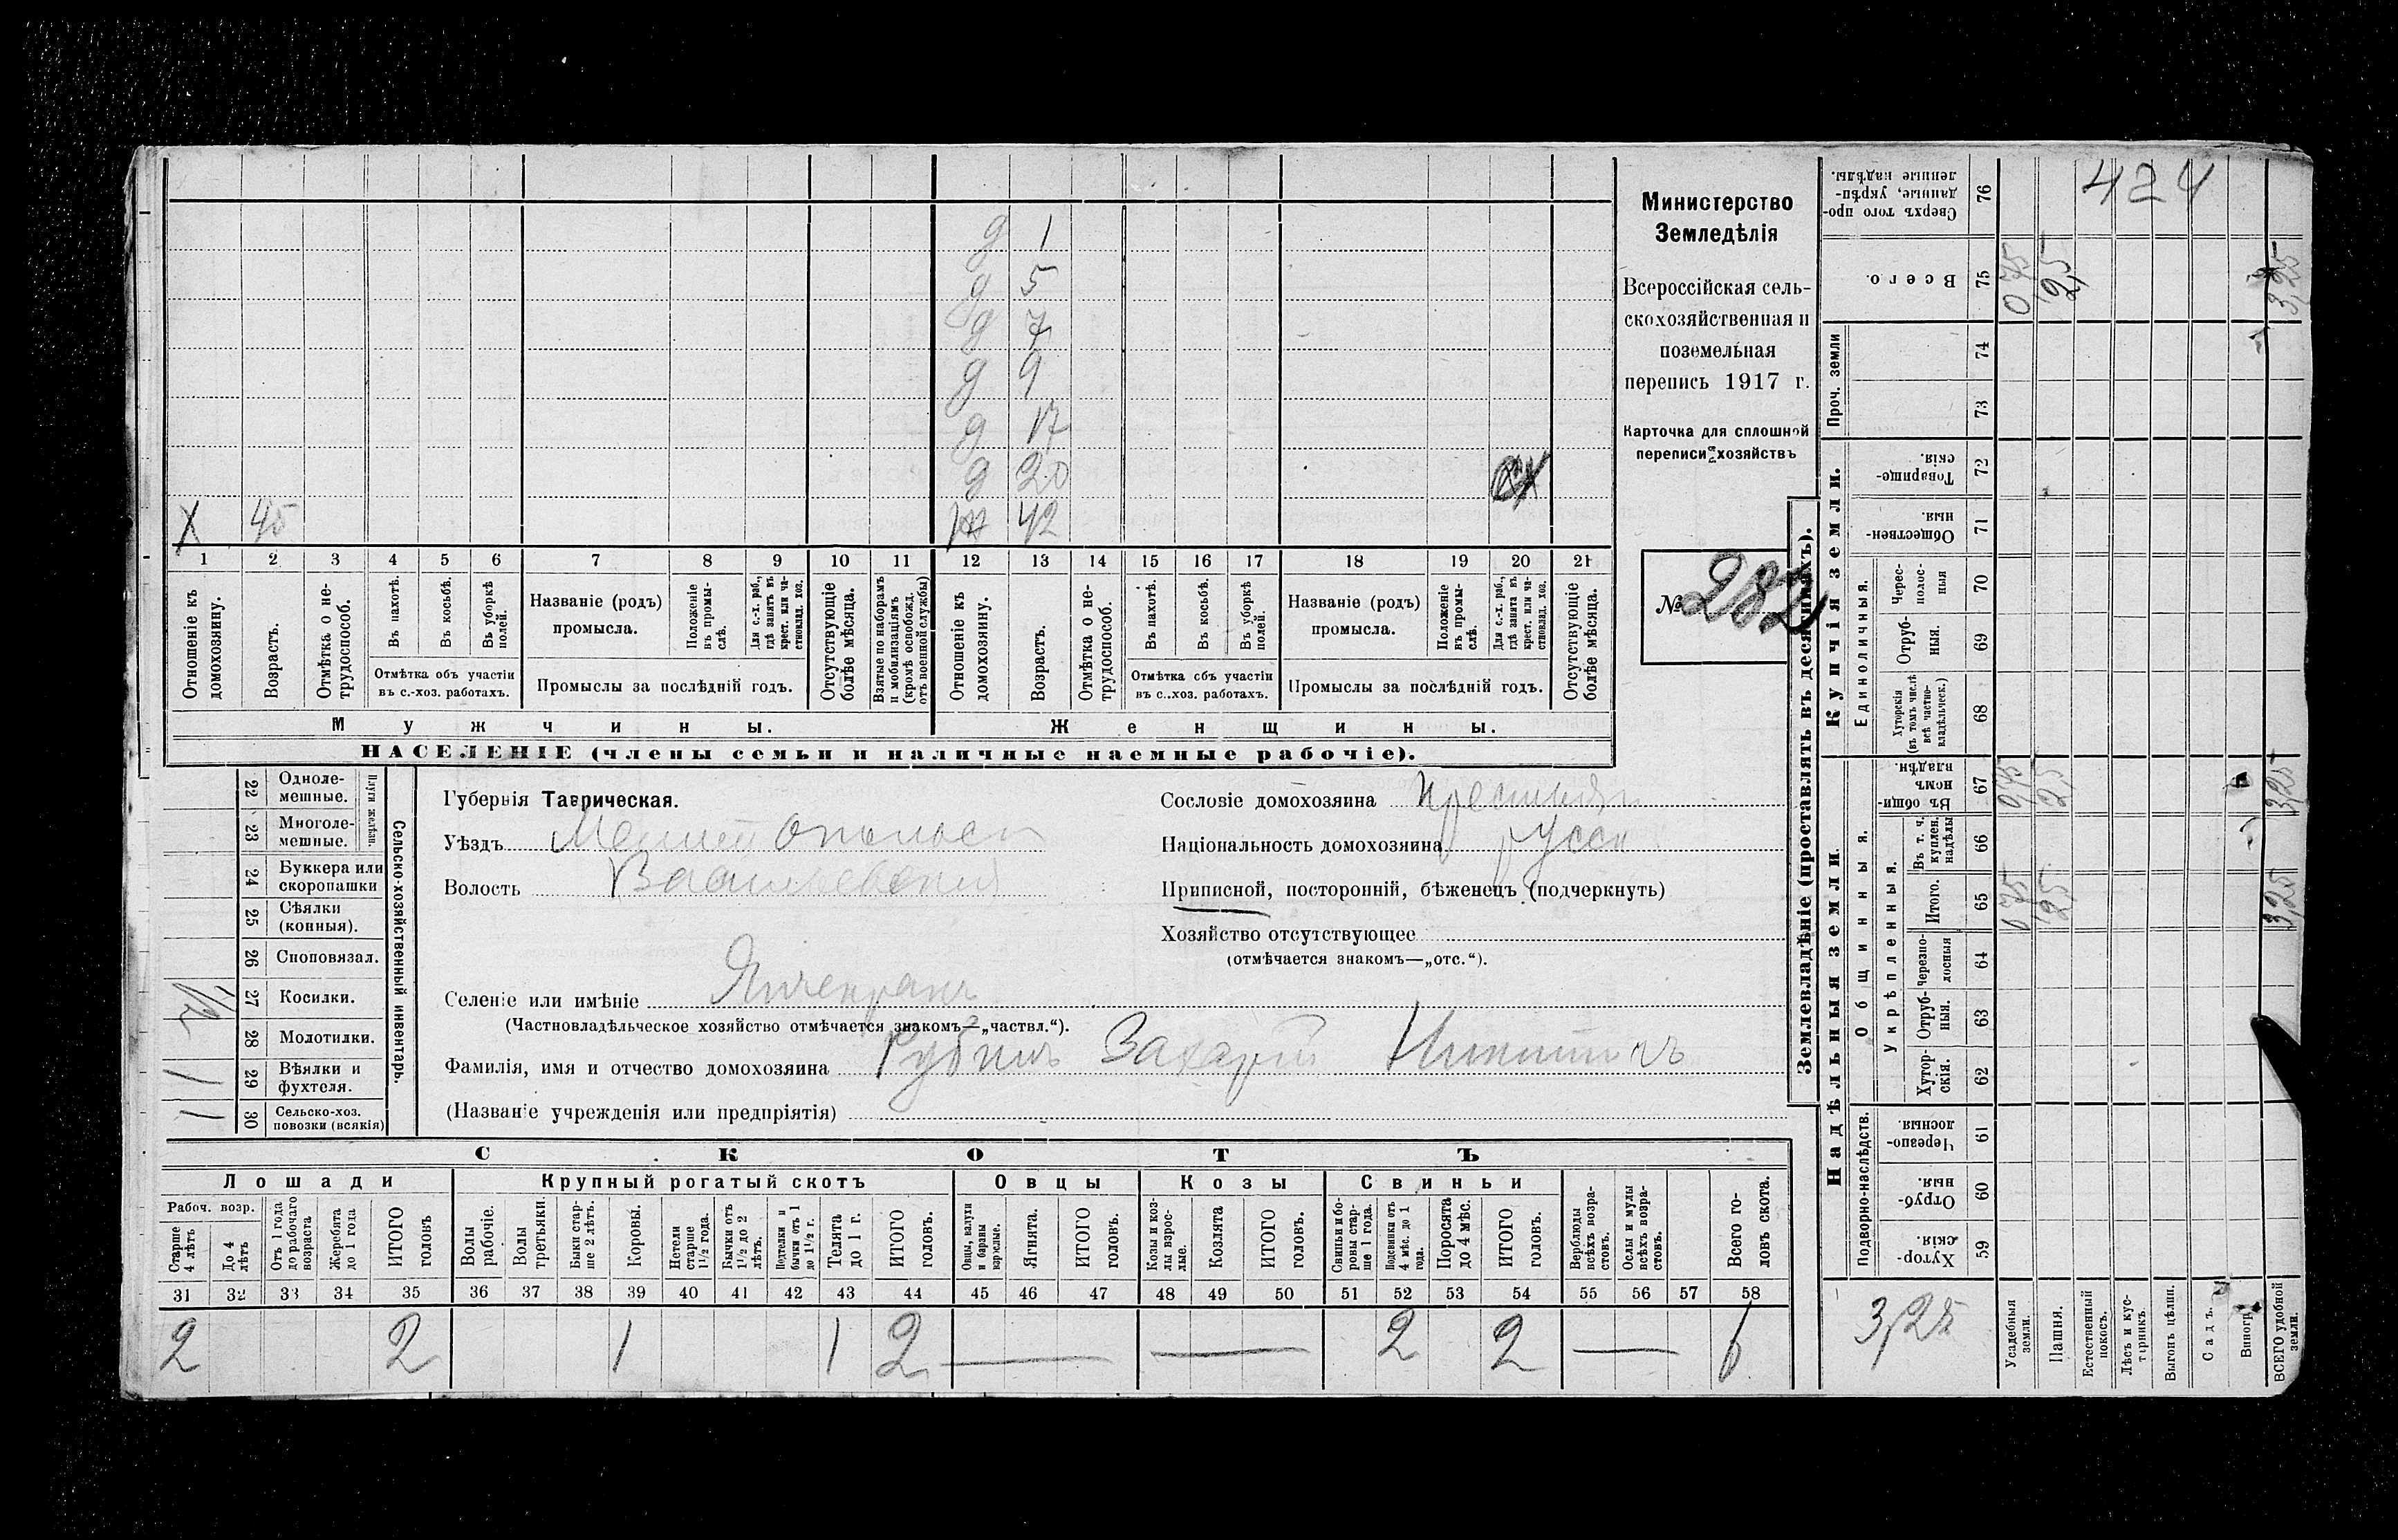 424
Министерство
Земледѣлія
Всероссійская сель-
скохозяйственная и
поземельная
перепись 1917 г.
Карточка для сплошной
переписи хозяйствъ
№ 282
д 1
д 5
д 7
д 9
д 17
д 20
ж 42
х 45
1 2 3 4 5 6 7 8 9 10 11 12 13 14 15 16 17 18 19 20 21
Отношеніе къ домохозяину.
Возрастъ.
Отмѣтка о не-трудоспособ.
Въ пахотѣ.
Въ косьбѣ.
Въ уборкѣ полей.
Отмѣтка объ участіи
въ с.-хоз. работахъ.
Названіе (родъ)
промысла.
Положеніе въ промы-слѣ.
Для с.-х. раб., гдѣ занятъ въ крест. или ча-стновлад. хоз.
Промыслы за послѣдній годъ.
Отсутствующіе болѣе мѣсяца.
Взятые по наборамъ и мобилизаціямъ (кромѣ освобожд. отъ военной службы)
Отношеніе къ домохозяину.
Возрастъ.
Отмѣтка о не-трудоспособ.
Въ пахотѣ.
Въ косьбѣ.
Въ уборкѣ полей.
Отмѣтка объ участіи
въ с.-хоз. работахъ.
Названіе (родъ)
промысла.
Положеніе въ промы-слѣ.
Для с.-х. раб., гдѣ занята въ крест. или ча-стновлад. хоз.
Промыслы за послѣдній годъ.
Отсутствующіе болѣе мѣсяца.
Мужчины.
Женщины.
НАСЕЛЕНІЕ (члены семьи и наличные наемные рабочіе).
Сельско-хозяйственный инвентарь.
Плуги желѣзн.
22 Одноле-мешные.
23 Многоле-мешные.
24 Буккера или скоропашки
25 Сѣялки (конныя).
26 Споповязал.
27 Косилки. 1/2
28 Молотилки.
29 Вѣялки и фухтеля. 1
30 Сельско-хоз. повозки (всякія) 1
Губернія Таврическая.
Уѣздъ Мелитопольск
Волость Васильевская
Селеніе или имѣніе Янчекракъ
(Частновладѣльческое хозяйство отмѣчается знакомъ—„частвл.“).
Фамилія, имя и отчество домохозяина Рубинъ Захарій Никитичъ
(Названіе учрежденія или предпріятія)
Сословіе домохозяина крестьян
Національность домохозяина русск
Приписной, посторонній, бѣженецъ (подчеркнуть)
Хозяйство отсутствующее
(отмѣчается знакомъ—„отс.“).
СКОТЪ
Лошади
Крупный рогатый скотъ
Овцы
Козы
Свиньи
Рабоч. возр.
Старше 4 лѣтъ
До 4 лѣтъ
Отъ 1 года до рабочаго возраста
Жеребята до 1 года
ИТОГО головъ
Волы рабочіе.
Волы третьяки.
Быки стар-ше 2 лѣтъ.
Коровы.
Нетели старше 1 1/2 года.
Бычки отъ 1 1/2 до 2 лѣтъ.
Нетелки и бычки отъ 1 до 1 1/2 г.
Телята до 1 г.
ИТОГО головъ.
Овцы, валухи и бараны взрослые.
Ягнята.
ИТОГО головъ.
Козы и коз-лы взрос-лые.
Козлята
ИТОГО головъ.
Свиньи и бо-ровы стар-ше 1 года.
Подсвинки отъ 4 мѣс. до 1 года.
Поросята до 4 мѣс.
ИТОГО головъ.
Верблюды всѣхъ возра-стовъ.
Ослы и мулы всѣхъ возра-стовъ.
Всего го-ловъ скота.
31 32 33 34 35 36 37 38 39 40 41 42 43 44 45 46 47 48 49 50 51 52 53 54 55 56 57 58
2 2 1 1 2 — — 2 2 — 6
Землевладѣніе (проставлять въ десятинахъ).
Надѣльныя земли
Купчія земли.
Проч. земли
Подворно-наслѣдств.
Общинныя.
Укрѣпленныя.
Единоличныя.
59 Хутор-скія.
60 Отруб-ныя.
61 Черезпо-лосныя.
62 Хутор-скія.
63 Отруб-ныя.
64 Черезпо-лосныя
65 Итого. 0,75 2,5 3,25
66 Въ т. ч. куплен. надѣлы
67 Въ общин-номъ владѣн. 0,75 2,5 3,25
68 Хуторскія (въ томъ числѣ всѣ частно-владѣльческ.)
69 Отруб-ныя.
70 Черес-полос-ныя
71 Обществен-ныя.
72 Товарище-скія.
73
74
75 Всего. 0,75 2,5 3,25
76 Сверхъ того про-данные, укрѣп-ленные надѣлы.
3,25
Усадебныя земли.
Пашня.
Естественный покосъ.
Лѣсъ и кус-тарникъ.
Выгонъ цѣлин.
Садъ.
Виногр.
ВСЕГО удобной земли.